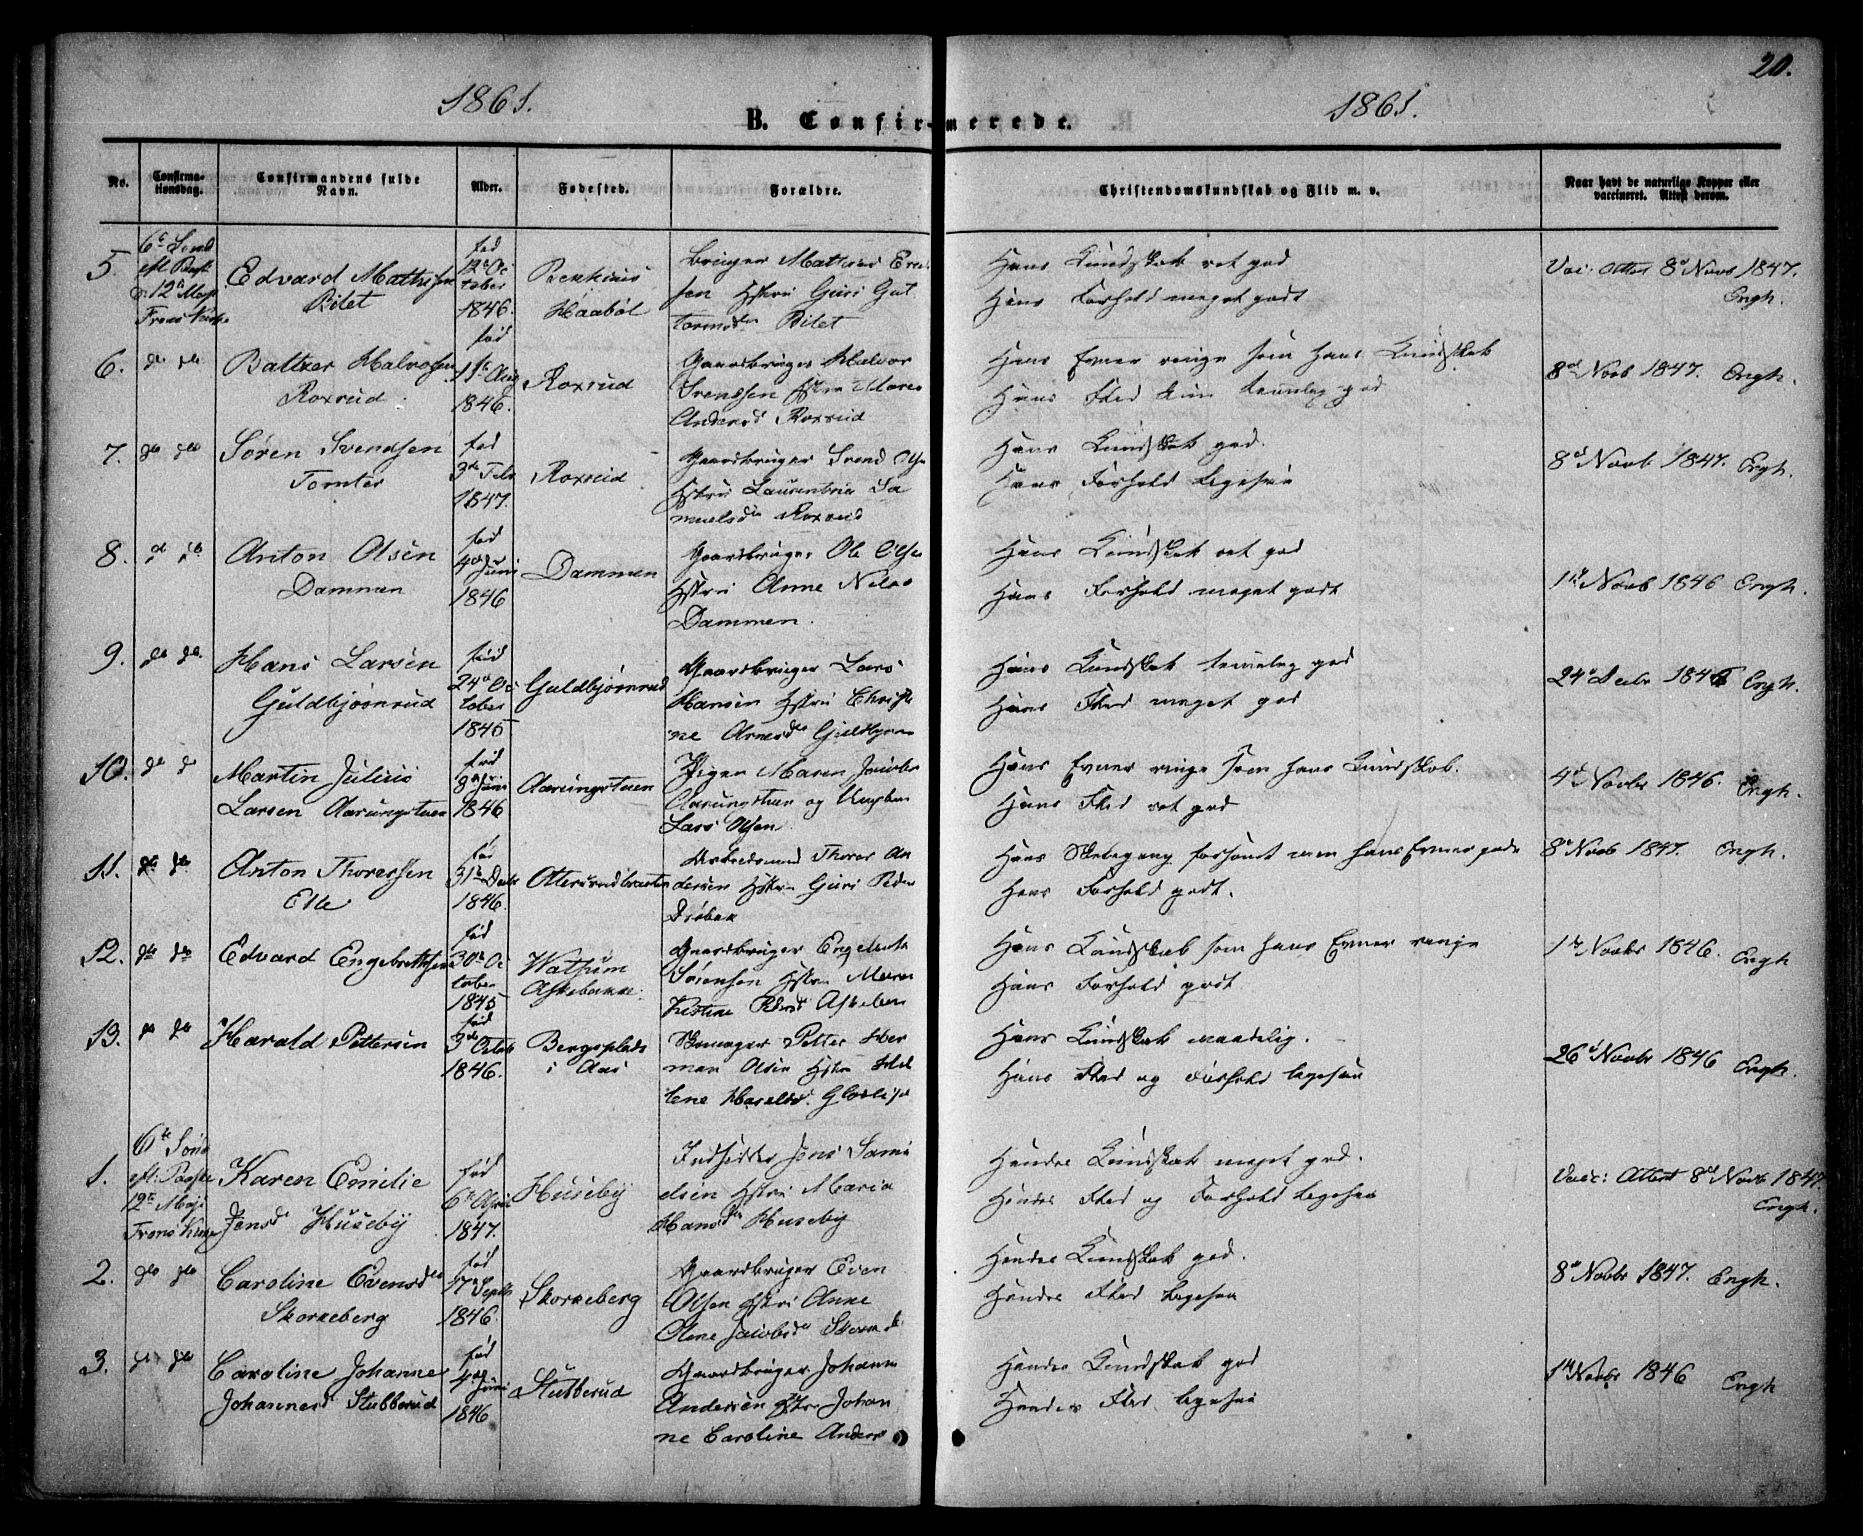 20.
1861.
1861.
B. Confirmerede.
No.
Confirma-
tionsdag.
Confirmandens fulde
Navn.
Alder.
Fødested.
Forældre.
Christendomskundskab og Flid m. v.
Naar havt de naturlige Kopper eller
vaccineret. Attest derom.
5.
6te Sønd
eft. Paaske
12te Maj
Frons Kirke
Edvard Mathisen
Bilet
fød
12te Oc
tober
1846.
Haabøl
Bruger Mathias
sen Hstru Guri Gut
tormsdr Bilet
Hans Kundskab ret god
Hans Forhold meget godt
Vac: Attest 8de Novb 1847.
Engh.
6.
do do
Baltzer Halvorsen
Roxrud
fød
11te Aug
1846.
Roxrud
Gaardbruger Halvor
Svendsen Hstru Maren
Andersd Roxrud
Hans Evner ringe som hans Kundskab
Hans Flid kun temmelig god
8de Novb 1847. Engh.
7.
do do
Søren Svendsen
Tomter
fød
3de Febr
1847.
Roxrud
Gaardbruger Svend Olsen
Hstru Laurentine Sa
muelsdr Roxrud
Hans Kundskab god.
Hans Forhold ligesaa
8de Novb. 1847. Engh.
8.
do do
Anton Olsen
Dammen
fød
4de Juni
1846
Dammen
Gaardbruger Ole Olsen
Hstru Anne Nilsd
Dammen.
Hans Kundskab ret god
Hans Forhold meget godt
1ste Novb 1846 Engh.
9.
do do.
Hans Larsen
Guldbjørnrud
fød
24de Oc
tober
1845
Guldbjørnrud
Gaardbruger Lars
Hansen Hstru Christi
ne Arnesdr Guldbjørn
Hans Kundskab temmelig god
Hans Flid meget god
24de Decbr 1846 Engh.
10.
do do
Martin Julius
Larsen Aarungstuen
fød
8de Juni
1846
Aarungstuen
Pigen Maren Jacobs
Aarungstuen og Ungkarl
Lars Olsen
Hans Evner ringe som hans Kundskab.
Hans Flid ret god
4de Novbr 1846. Engh.
11.
do do
Anton Thoressen
Elle
fød
31te Decbr
1846.
Ottersrudbraaten
Arbeidsmand Thorer An
dersen Hstru Guri Peders
Drøbak
Hans Skolegang forsømt men hans Evner gode
Hans Forhold godt.
8de Novb 1847. Engh.
12.
do do
Edvard Engebrethsen
fød
30te Oc
tober
1845
Askebakke.
Gaardbruger Engebreth
Sørensen Hstru Maren
Kistine Askebak
Hans Kundskab som hans Evner ringe
Hans Forhold godt
1ste Novbr 1846. Engh
13.
do do
Harald Pettersen
fød
3de Octob
1846.
Bergsplads
i Aas
Skomager Petter Her
man Olsen Hstru Hel
lene
Hans Kundskab maadelig.
Hans Flid og Forhold ligesaa
26de Novbr 1846 Engh.
1.
6te Sønd
eft. Paaske
12te Maj
Frons Kirke
Karen Emilie
Jensdr Huseby
fød
6te April
1847.
Huseby
Indsidder Jens Samu
elsen Hstru Maria
Hansdr Huseby
Hendes Kundskab meget god.
Hendes Flid og Forhold ligesaa
Vacc: Attest 8de Novb 1847
Engh.
2.
do do
Caroline Evensdr
Skorkeberg
fød
17de Septb
1846.
Skorkeberg
Gaardbruger Even
Olsen Hstru Anne
Olene Jacobsdr
Hendes Kundskab god.
Hendes Flid ligesaa
8de Novbr 1847. Engh.
3.
do do
Caroline Johanne
Johannesd Stubberud
fød
4de Juni
1846
Stubberud
Gaardbruger Johannes
Andersen Hstru Johan
ne Caroline Anders
Hendes Kundskab god
Hendes Flid ligesaa
1ste Novbr 1846 Engh